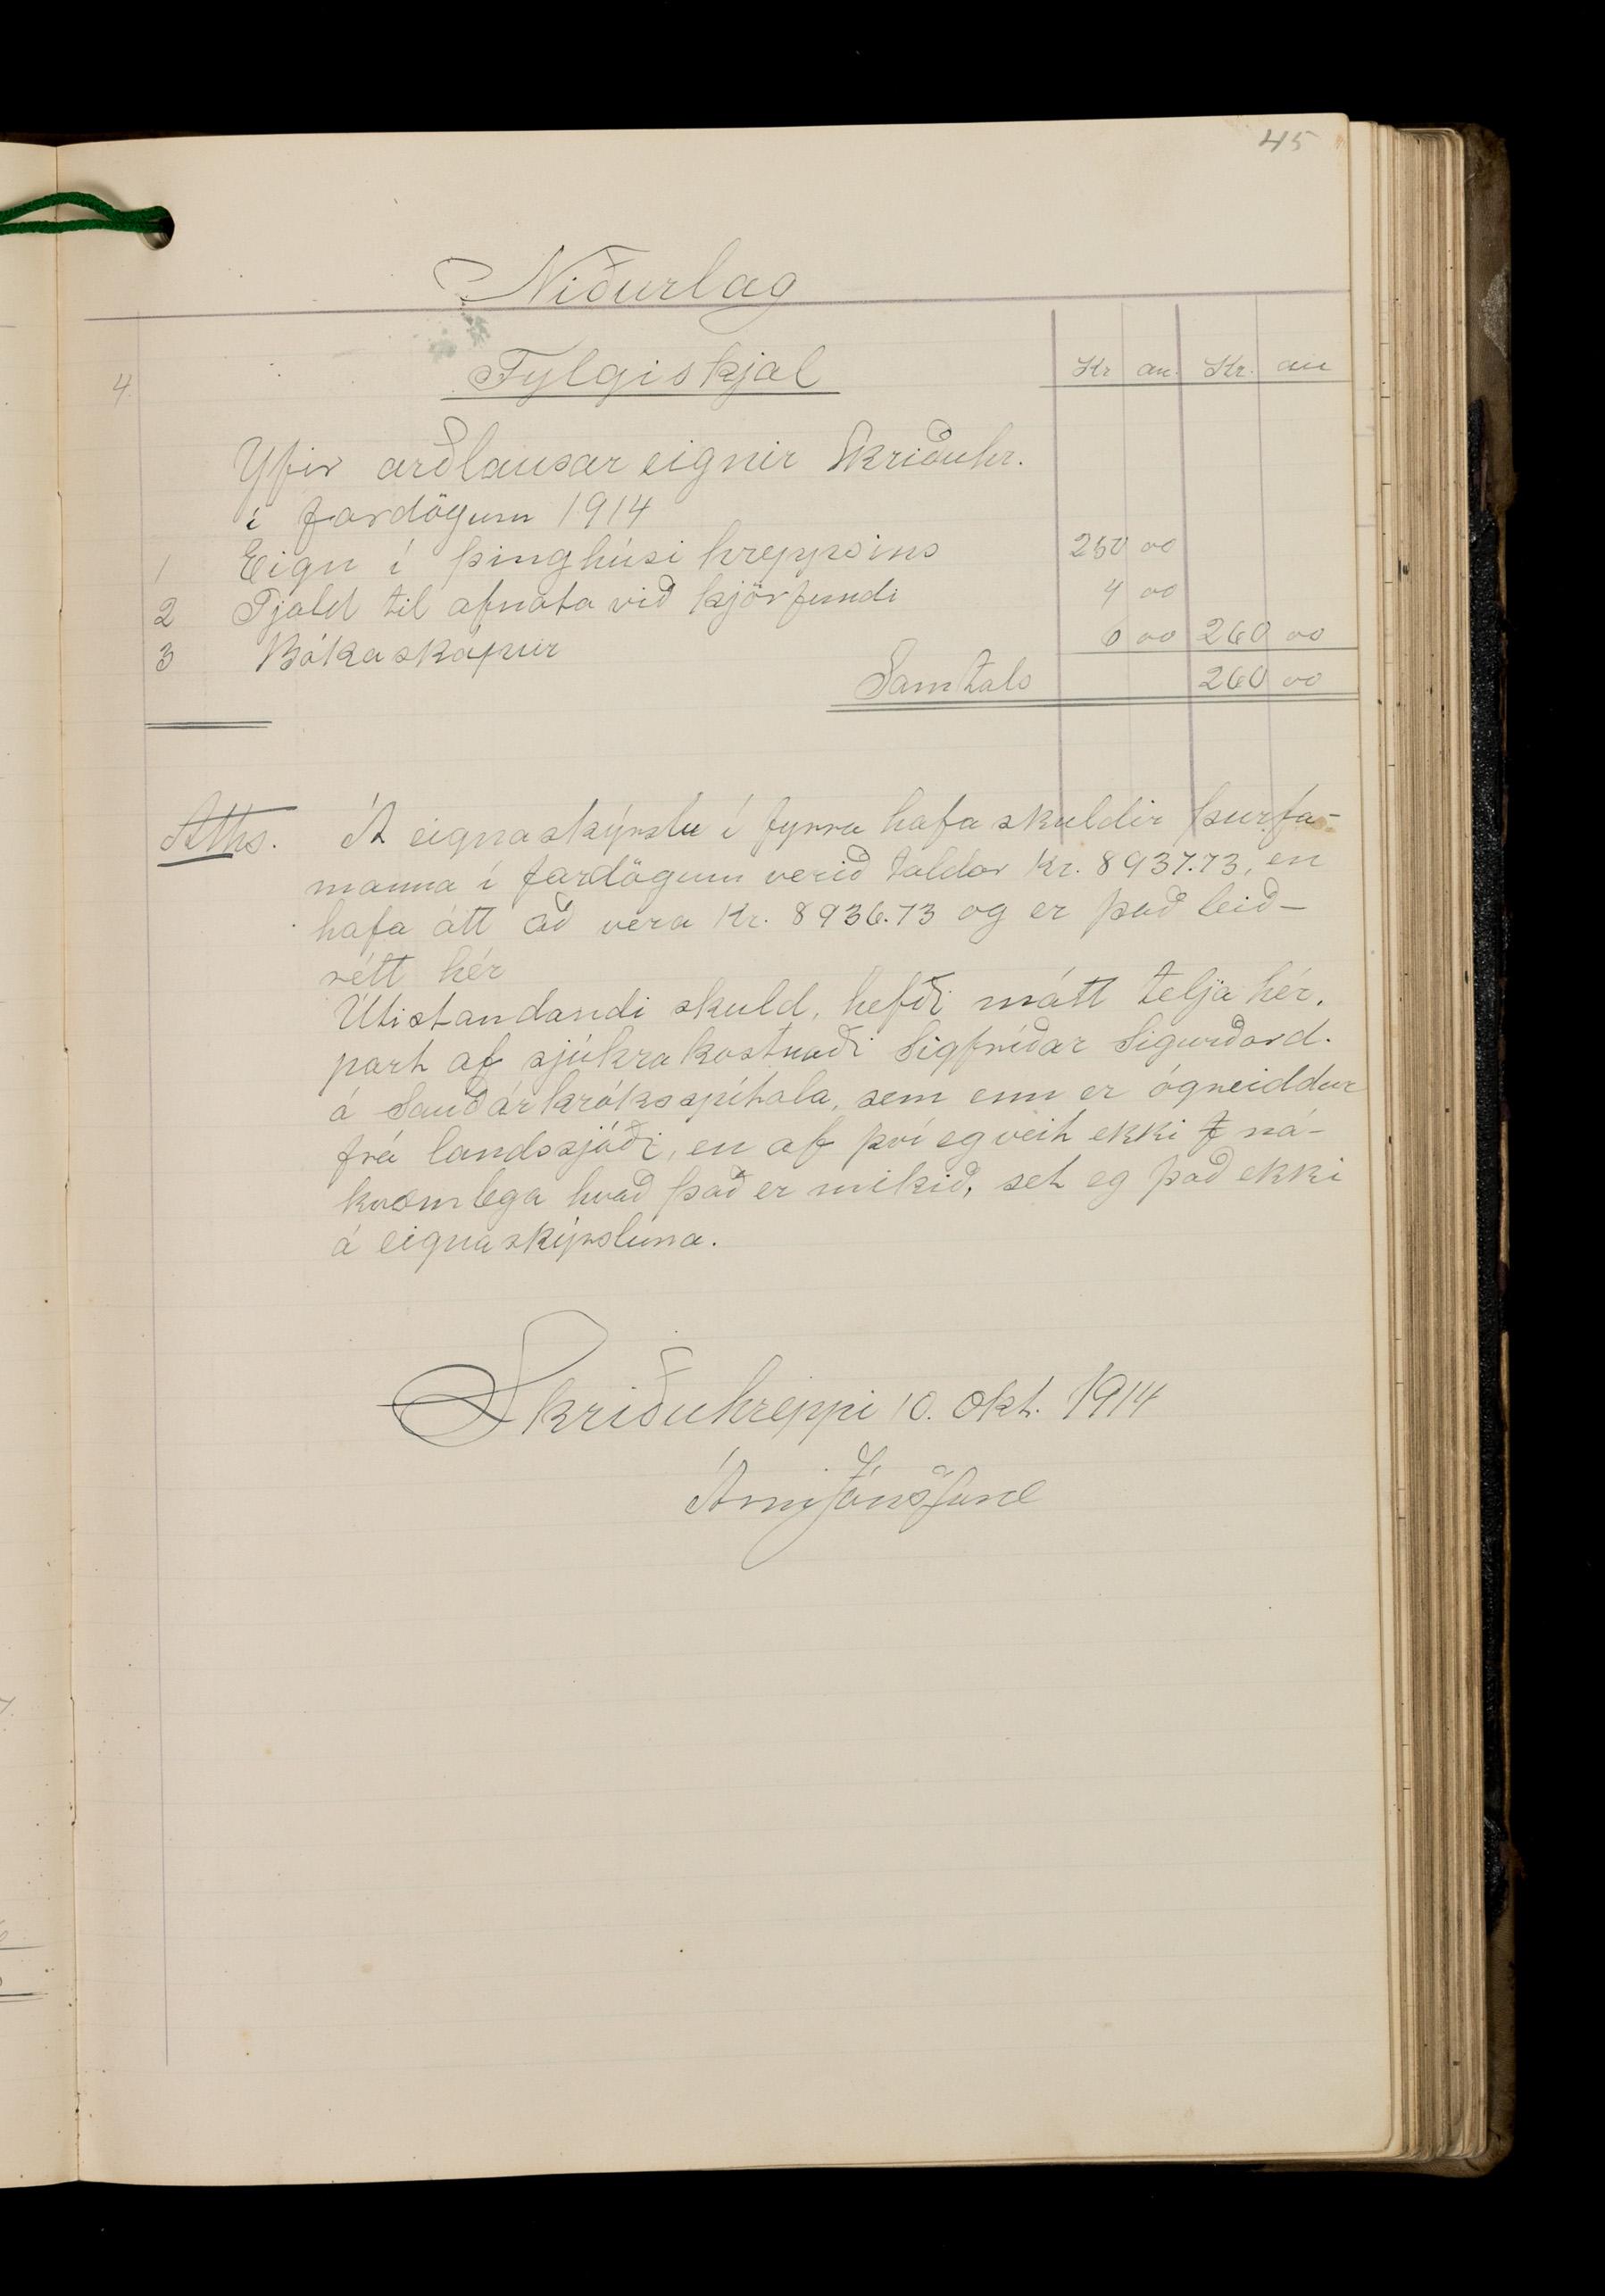 45
Niðurlag
4. Fylgiskjal Kr au. Kr. au
Yfir arðlausar eignir Skriðuhr.
í fardögum 1914
1 Eign í þinghúsi hreppsins 250 00
2 Tjald til afnota við kjörfundi 4 00
3 Bókaskápur 6 00 260 00
Samtals 260 00
Aths. Á eignaskýrslu í fyrra hafa skuldir þurfa-
manna í fardögum verið taldar Kr. 8937.73, en
hafa átt að vera Kr. 8936.73 og er það leið-
rétt hér
Útistandandi skuld, hefði mátt telja hér,
part af sjúkrakostnaði Sigfríðar Sigurðard.
á Sauðárkróksspítala, sem enn er ógreiddur
frá landssjóði, en af því eg veit ekki ná-
kvæmlega hvað það er mikið, set eg það ekki
á eignaskýrsluna.
Skriðuhreppi 10. Okt. 1914
Árni Jónsson